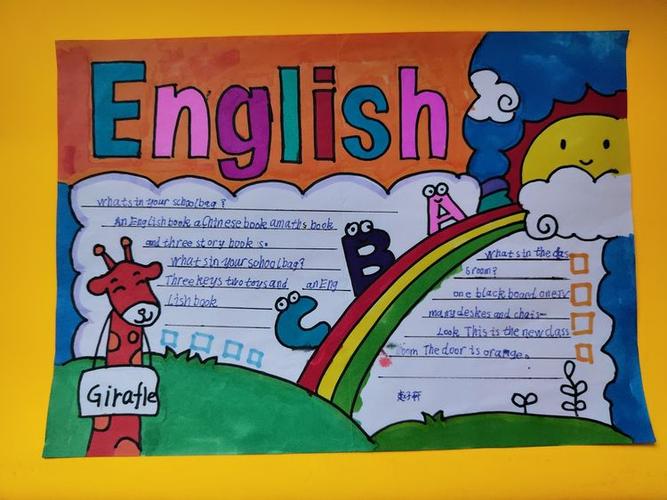 English
whats in your schoolbag?
An English book a Chinese book a maths book
and three story book s.
whats in your schoolbag?
Three keys two toys and an Eng
Lish book
C
B
A
Girafle
whats in the clas
sroom?
one black board one TV
many deskes and chais
Look This is the new class
room The door is orange.